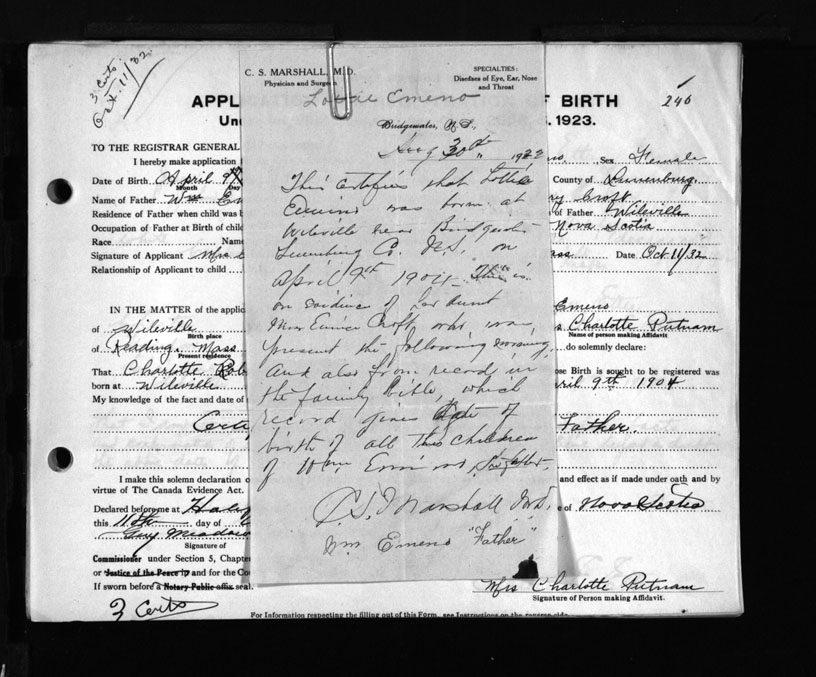 3 Certs
Oct. 11/32
C. S. MARSHALL, M.D.
Physician and Surgeon
SPECIALTIES:
Diseases of Eye, Ear, Nose
and Throat
Lottie Emeno
Bridgewater, N.S.,
Aug 30th 1932
This Certifies that Lottie
was born at
Wileville near Bridgewater
Lunenburg Co. N.S., on
April 9th 1904. This is
on evidence of her Aunt
Mrs Eunice Croft who was
present the following evening
And also from records in
the family bible, which
record gives date of
birth of all the children
of Wm
C. S. Marshall M.D.
Wm Emeno "Father"
APPL
OF BIRTH
246
Un
1923.
TO THE REGISTRAR GENERAL
I hereby make application
Sex Female
Date of Birth April 9th
Month Day
County of Lunenburg
Name of Father Wm Em
ry Croft
Residence of Father when child was b
of Father Wileville
Occupation of Father at Birth of child
Nova Scotia
Race Name
Signature of Applicant Mrs
ass Date Oct 11/32
Relationship of Applicant to child
IN THE MATTER of the applic
Emeno
of Wileville
Birth place
s Charlotte Putnam
Name of person making Affidavit
of Reading, Mass
Present residence
do solemnly declare:
That Charlotte Rob
ose Birth is sought to be registered was
born at Wileville
ril 9th 1904
My knowledge of the fact and date of
Father.
I make this solemn declaration
and effect as if made under oath and by
virtue of The Canada Evidence Act.
Declared before me at
e of Nova Scotia
this 11th day of
Guy
Signature of
Commissioner under Section 5, Chapte
or Justice of the Peace and for the Co
If sworn before a Notary Public affix seal.
Mrs Charlotte Putnam
Signature of Person making Affidavit.
3 Certs
For Information respecting the filling out of this Form, see Instructions on the reverse side.